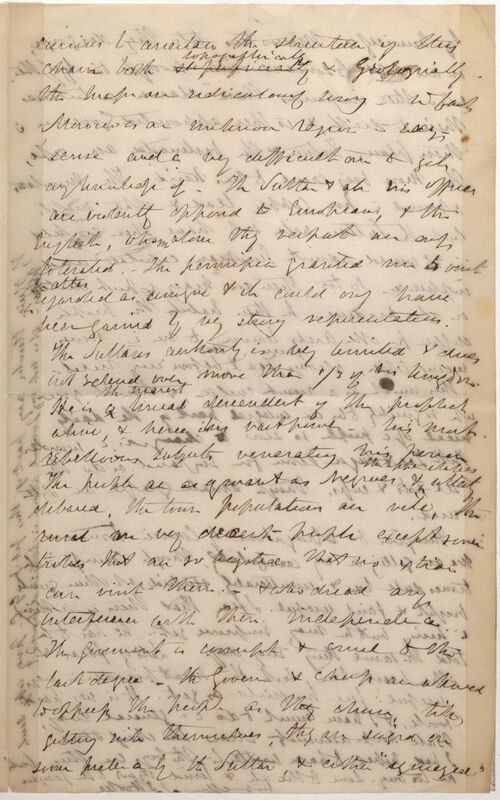 curious to ascertain the structure of this
chain both stratigraphically topographically & Geologically
the maps are ridiculously wrong in fact
Morocco is an unknown region in every
sense and a very difficult one to get
any knowledge of. The Sultan & all his officers
are violently opposed to Europeans, & the
English, whom alone they respect are only
tolerated. — The permission granted me to visit
the Atlas
regarded as unique & it could only have
been gained by very strong representations.
The Sultans authority is very limited & does
not extend over more than 1/3 of his kingdom.
He is the nearest lineal descendent of the prophet
alive, & hence his vast power — his most
rebellious subjects venerating his person
The people are as ignorant as Negroes & utterly
debased, the town populations are vile, the
rural are very decent people except some
tribes that are so
can visit them. — & who dread any
interference with their independence.
The government is corrupt & cruel to the
last degree — the Governors & Chiefs are allowed
to oppress the people as they choose, till
getting rich themselves, they are seized on
some pretence by the Sultan, & either "squeezed"